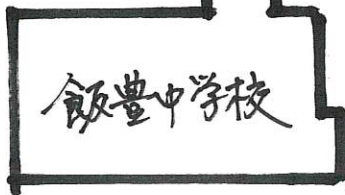 飯豊中学校